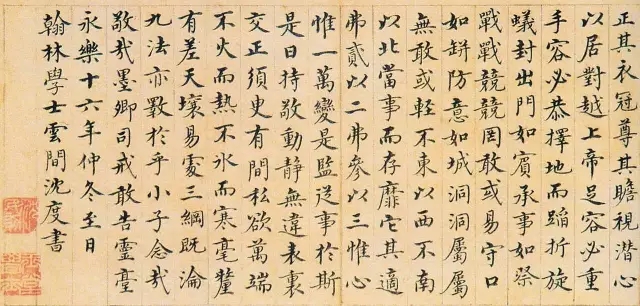 正其衣冠尊其瞻視潛心
以居對越上帝足容必重
手容必恭擇地而蹈折旋
蟻封出門如賓承事如祭
戰戰兢兢罔敢或易守口
如缾防意如城洞洞屬屬
無敢或輕不東以西不南
以北當事而存靡它其適
弗貳以二弗參以三惟心
惟一萬變是監從事於斯
是曰持敬動靜無違表裏
交正須臾有間私欲萬端
不火而熱不冰而寒毫釐
有差天壤易處三綱既淪
九法亦斁於乎小子念哉
敬哉墨卿司戒敢告靈臺
永樂十六年仲冬至日
翰林學士雲間沈度書